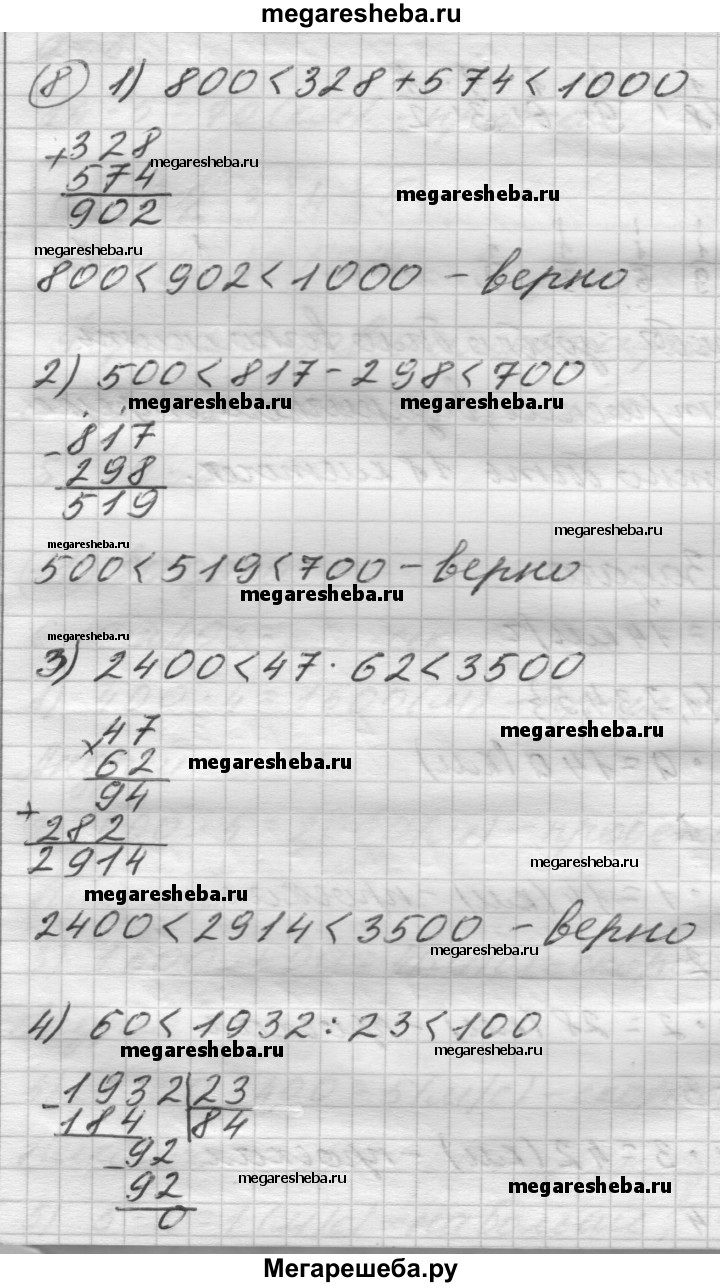 megaresheba.ru
8 1) 800 < 328 + 574 < 1000
+ 328
megaresheba.ru
574
megaresheba.ru
902
megaresheba.ru
800 < 902 < 1000 - верно
2) 500 < 817 - 298 < 700
megaresheba.ru megaresheba.ru
- 817
298
519
megaresheba.ru
megaresheba.ru
500 < 519 < 700 - верно
megaresheba.ru
megaresheba.ru
3) 2400 < 47 · 62 < 3500
47
megaresheba.ru
× 62
megaresheba.ru
94
+ 282
2914
megaresheba.ru
megaresheba.ru
2400 < 2914 < 3500 - верно
megaresheba.ru
4) 60 < 1932 : 23 < 100
megaresheba.ru megaresheba.ru
- 1932 | 23
184 84
- 92
92
megaresheba.ru
megaresheba.ru
0
Мегарешеба.ру